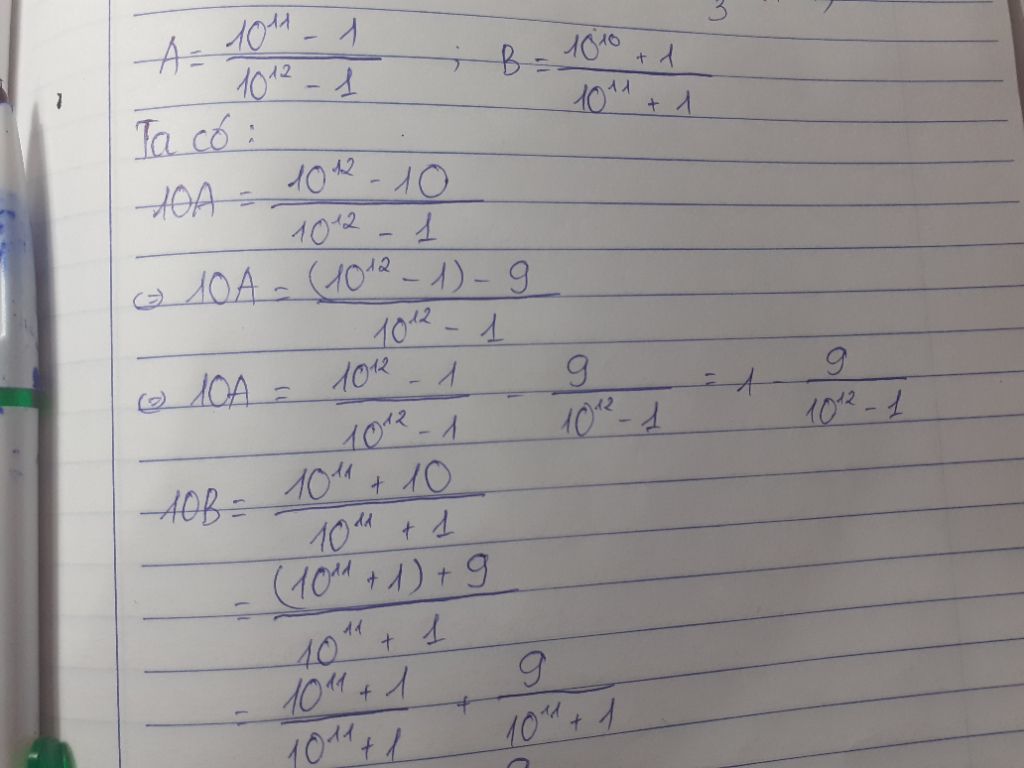 3
A = \frac{10^{11} - 1}{10^{12} - 1} ; B = \frac{10^{10} + 1}{10^{11} + 1}
Ta có :
10A = \frac{10^{12} - 10}{10^{12} - 1}
⇔ 10A = \frac{(10^{12} - 1) - 9}{10^{12} - 1}
⇔ 10A = \frac{10^{12} - 1}{10^{12} - 1} - \frac{9}{10^{12} - 1} = 1 - \frac{9}{10^{12} - 1}
10B = \frac{10^{11} + 10}{10^{11} + 1}
= \frac{(10^{11} + 1) + 9}{10^{11} + 1}
= \frac{10^{11} + 1}{10^{11} + 1} + \frac{9}{10^{11} + 1}